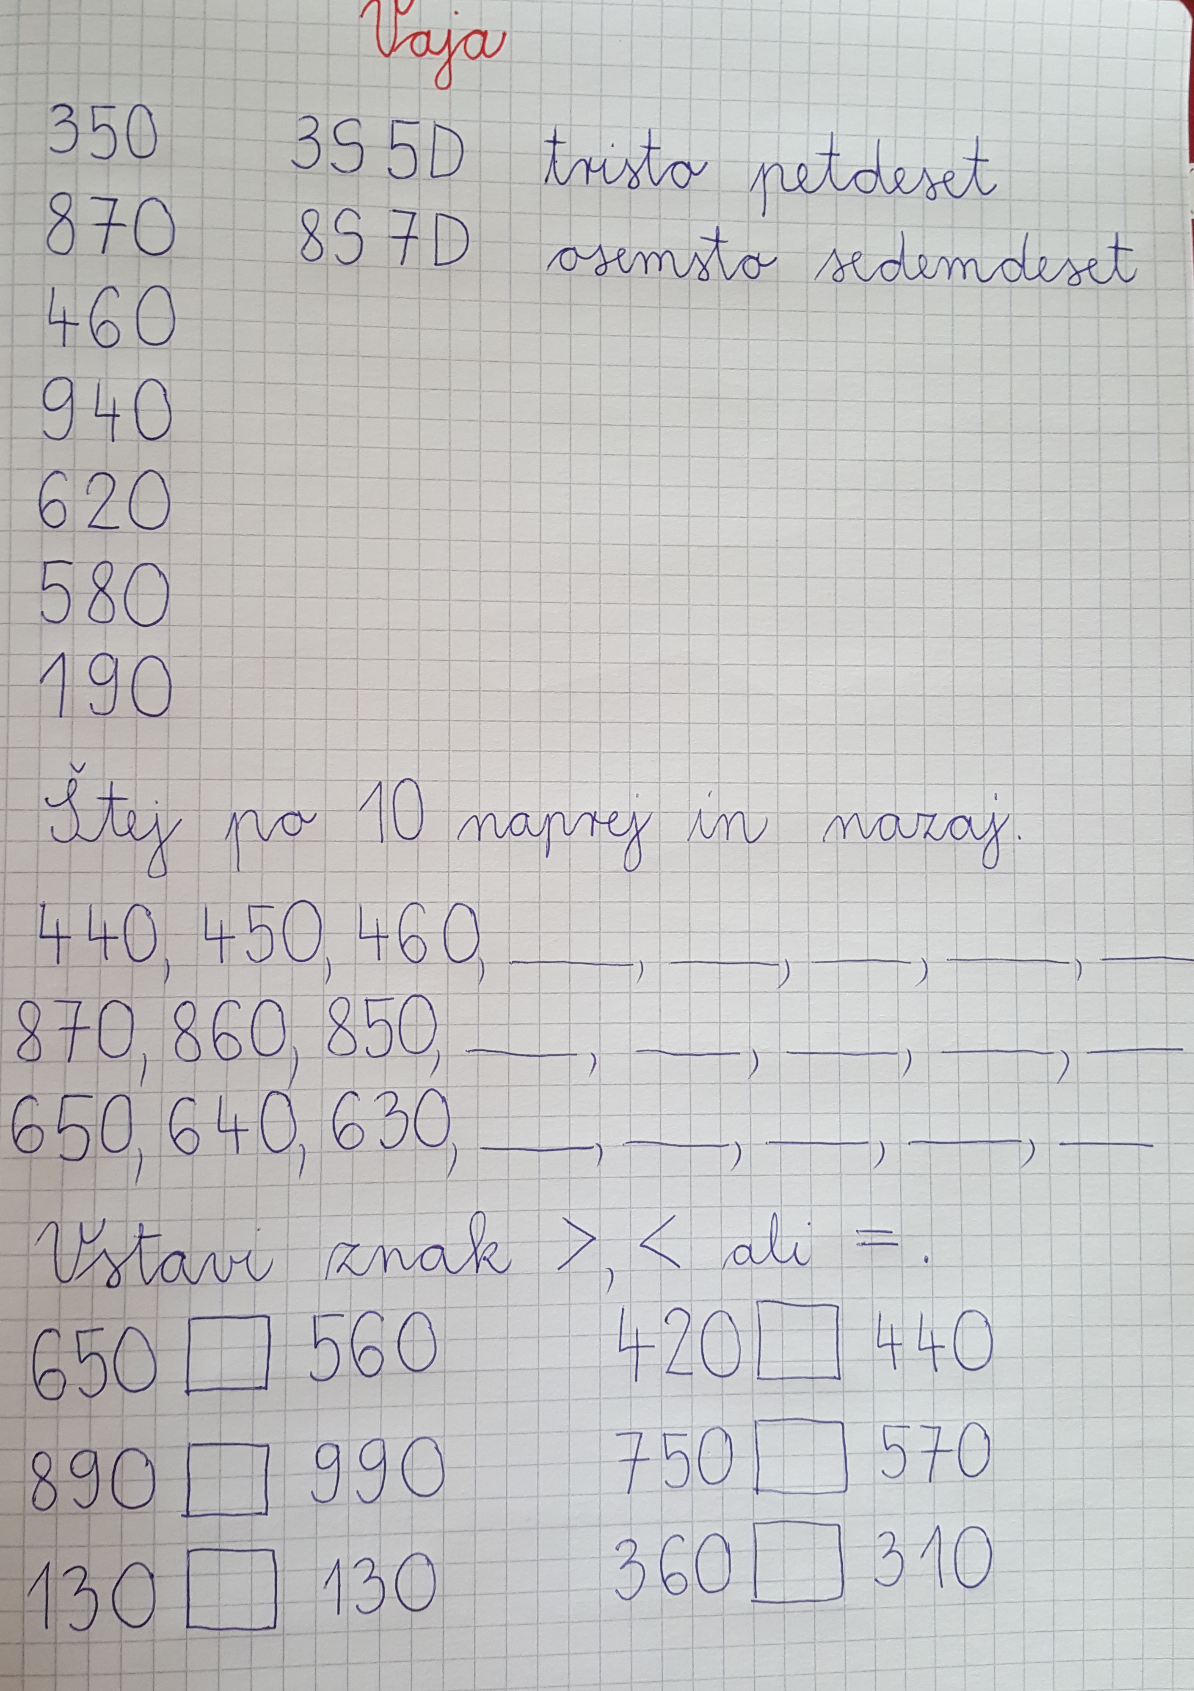 Vaja
350 3S 5D tristo petdeset
870 8S 7D osemsto sedemdeset
460
940
620
580
190
Štej po 10 naprej in nazaj.
440, 450, 460, ___, ___, ___, ___, ___
870, 860, 850, ___, ___, ___, ___, ___
650, 640, 630, ___, ___, ___, ___, ___
Vstavi znak >, < ali =.
650 □ 560 420 □ 440
890 □ 990 750 □ 570
130 □ 130 360 □ 310